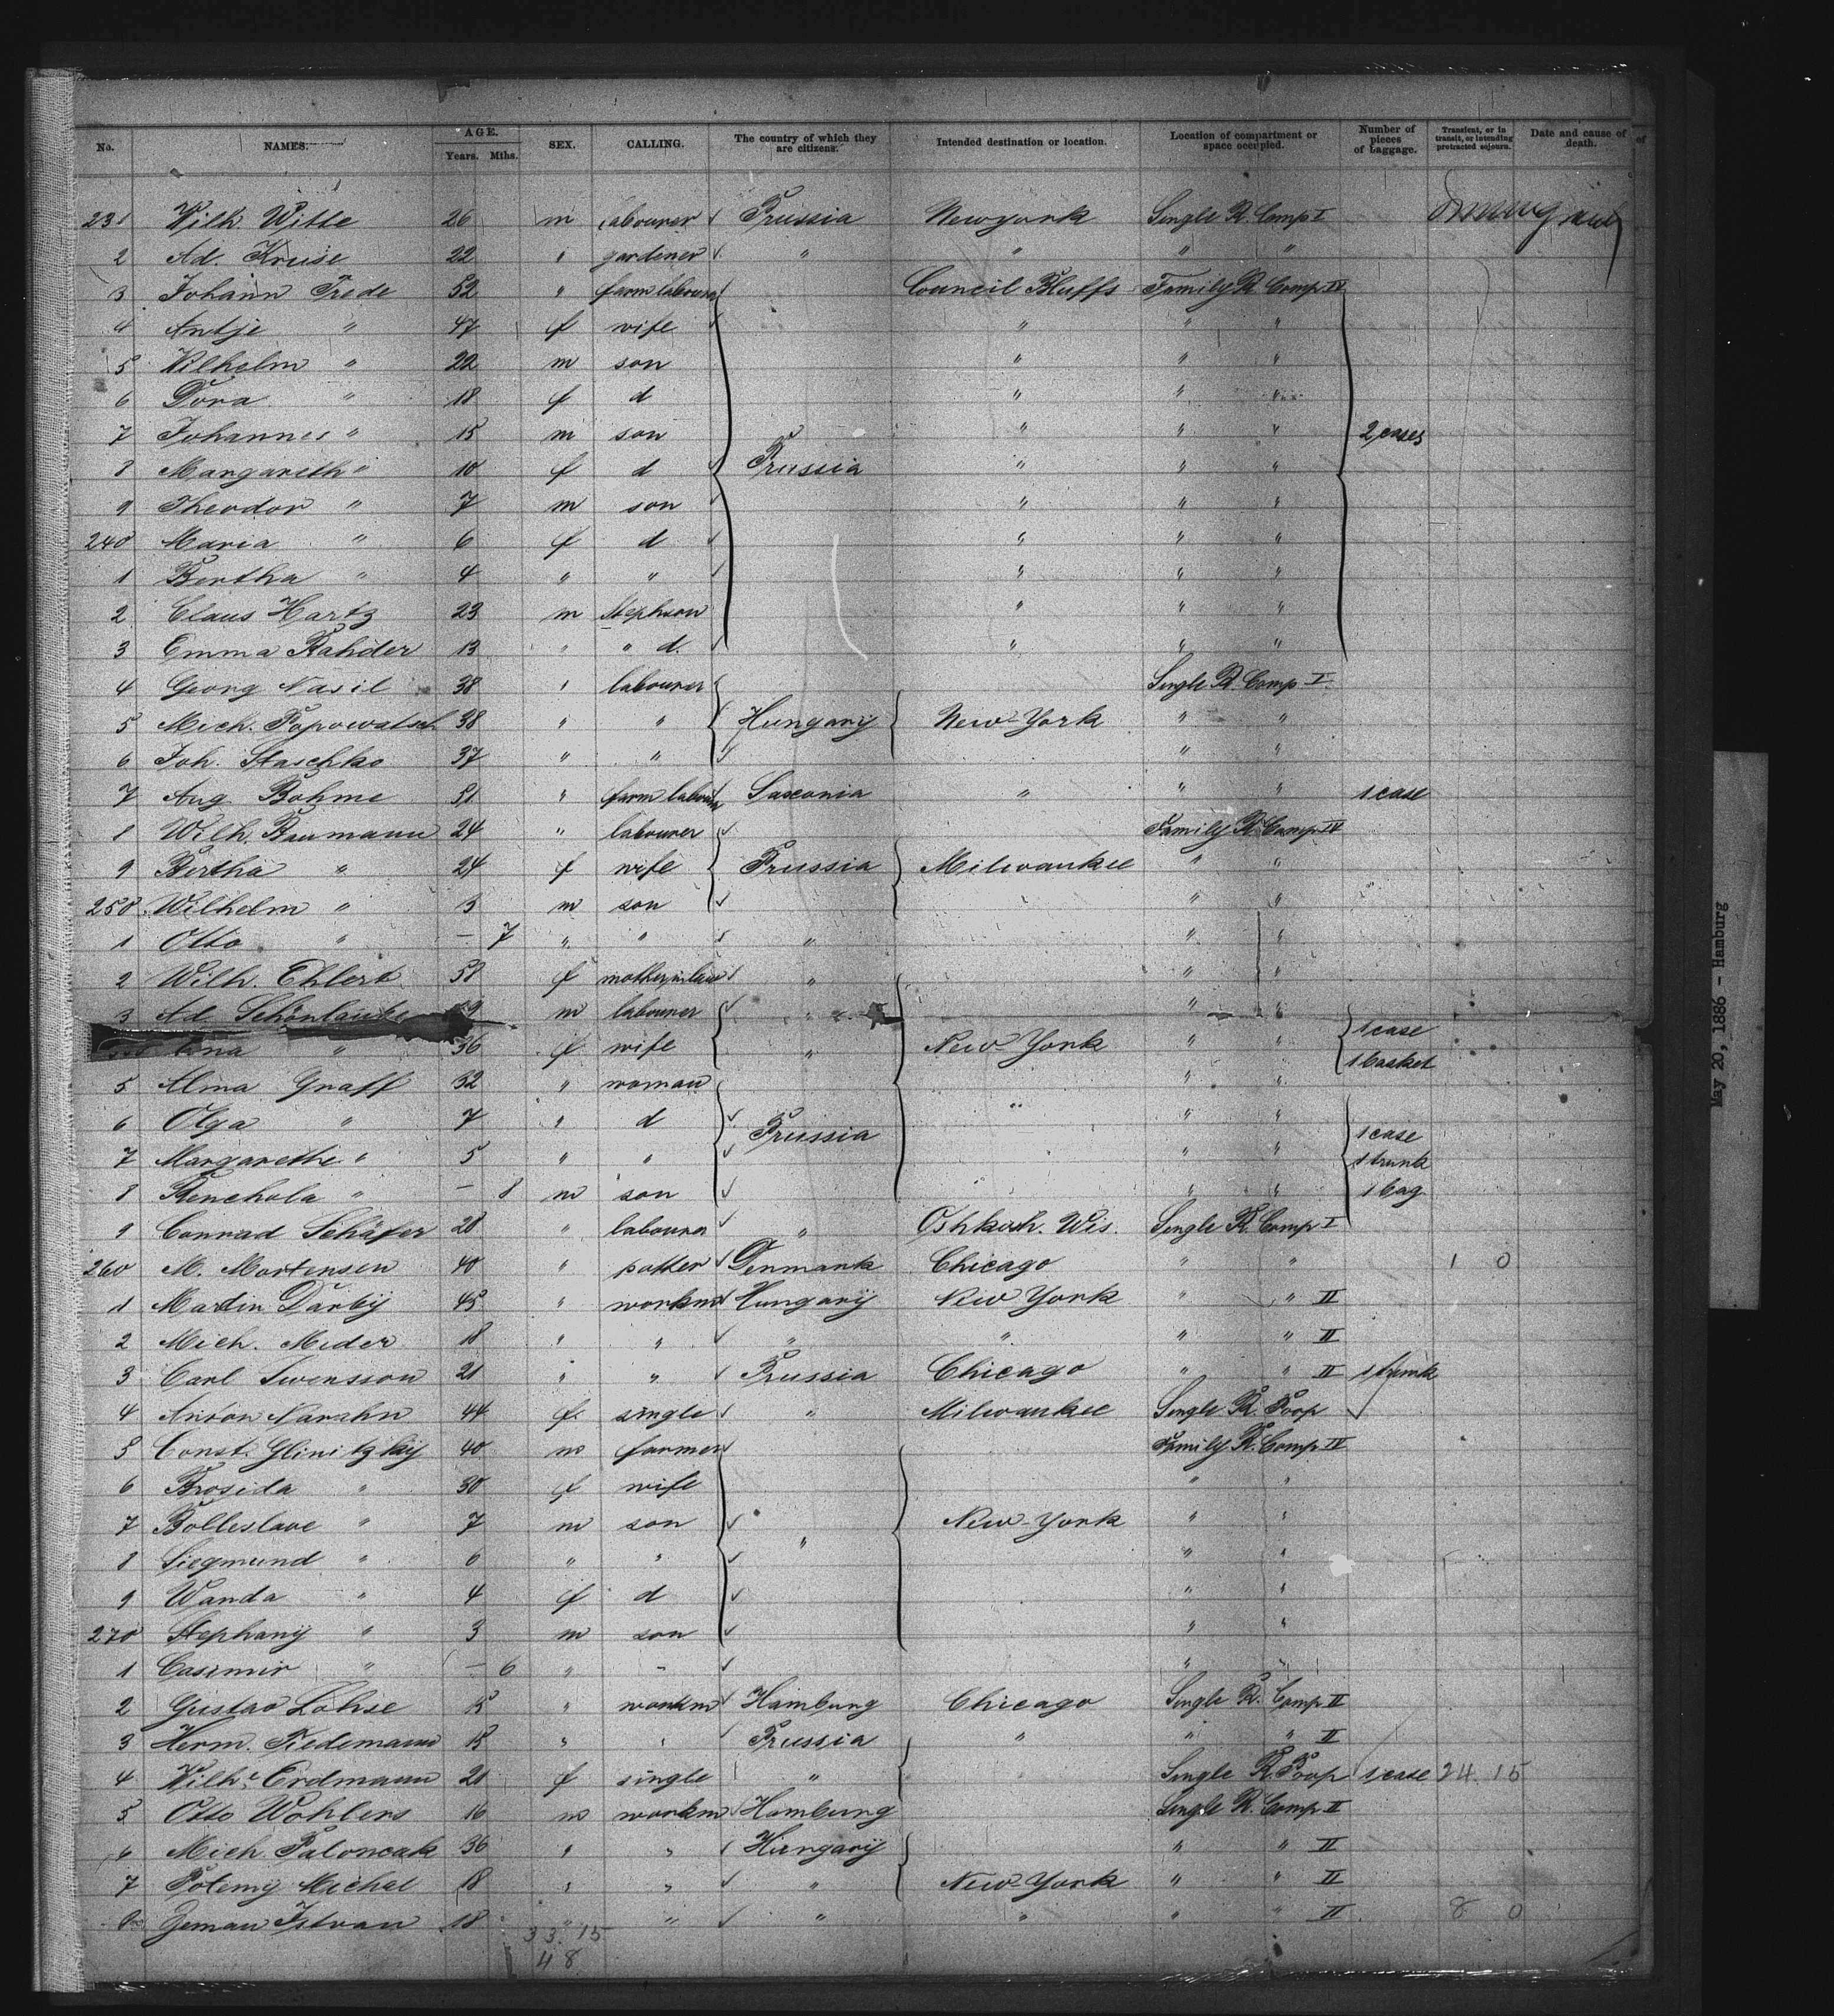 No. NAMES. AGE. Years. Mths. SEX. CALLING. The country of which they are citizens. Intended destination or location. Location of compartment or space occupied. Number of pieces of Luggage. Transient, or in transit, or intending protracted sojourn. Date and cause of death.
231 Wilh. Witte 26 m labourer Prussia Newyork Single R. Comp I
2 Ad. Kruse 22 " gardener " " " "
3 Johann Trede 52 " farm labourer Council Bluffs Family R. Comp IV
4 Antje " 47 f wife " " "
5 Wilhelm " 22 m son " " "
6 Dora " 18 f d " " "
7 Johannes " 15 m son " " " 2 cases
8 Margareth " 10 f d Prussia " " "
9 Theodor " 7 m son " " "
240 Maria " 6 f d " " "
1 Bertha " 4 " " " " "
2 Claus Hartz 23 m stephson " " "
3 Emma Rahder 13 " " d. " " "
4 Georg Nasil 38 " labourer Single R. Comp I.
5 Mich. Popowatsch 38 " " Hungary New-York " "
6 Joh. Staschko 37 " " " "
7 Aug. Böhme 51 " farm labour Saxonia " " " 1 case
8 Wilh. Baumann 24 " labourer Family R. Comp IV
9 Bertha " 24 f wife Prussia Milwaukee " "
250 Wilhelm " 3 m son " "
1 Otto " — 7 " " " " "
2 Wilh. Ehlert 58 f mother in law " " "
3 Ad. Schönlanke m labourer " " "
" 36 f wife " New-York " " 1 case 1 basket
5 Alma Graff 32 " woman " "
6 Olga " 7 " d Prussia " " " 1 case
7 Margarethe " 5 " " " " 1 trunk
8 " — 8 m son " " 1 bag
9 Conrad Schäfer 28 " labourer " Oshkosh. Wis. Single R. Comp I
260 M. Mortensen 40 " potter Denmark Chicago " " 1 0
1 Martin Darby 45 " workm Hungary New York " " II
2 Mich. Meder 18 " " " " " " II
3 Carl Swensson 21 " " Prussia Chicago " " II 1 trunk
4 Anton Narahn 44 f. single " Milwaukee Single R. Poop
5 Const. Glinitzky 40 m farmer Family R. Comp IV
6 Brosida " 30 f wife " "
7 Bolleslave " 7 m son " New-York " "
8 Siegmund " 6 " " " "
9 Wanda " 4 f d " "
270 Stephany " 3 m son " "
1 Casimir " — 6 " " " "
2 Gustav Lohse 15 " workm Hamburg Chicago Single R. Comp II
3 Herm. Tiedemann 15 " " Prussia " " " II
4 Wilh. Erdmann 21 f single " Single R. Poop 1 case 24. 15
5 Otto Wohlers 16 m workm Hamburg Single R. Comp II
6 Mich. Paloncak 36 " " Hungary " " II
7 Potemy Michal 18 " " " New-York " " II
8 Zeman Istvan 18 " " " " " " II 8 0
33. 15
48
May 20, 1886 - Hamburg